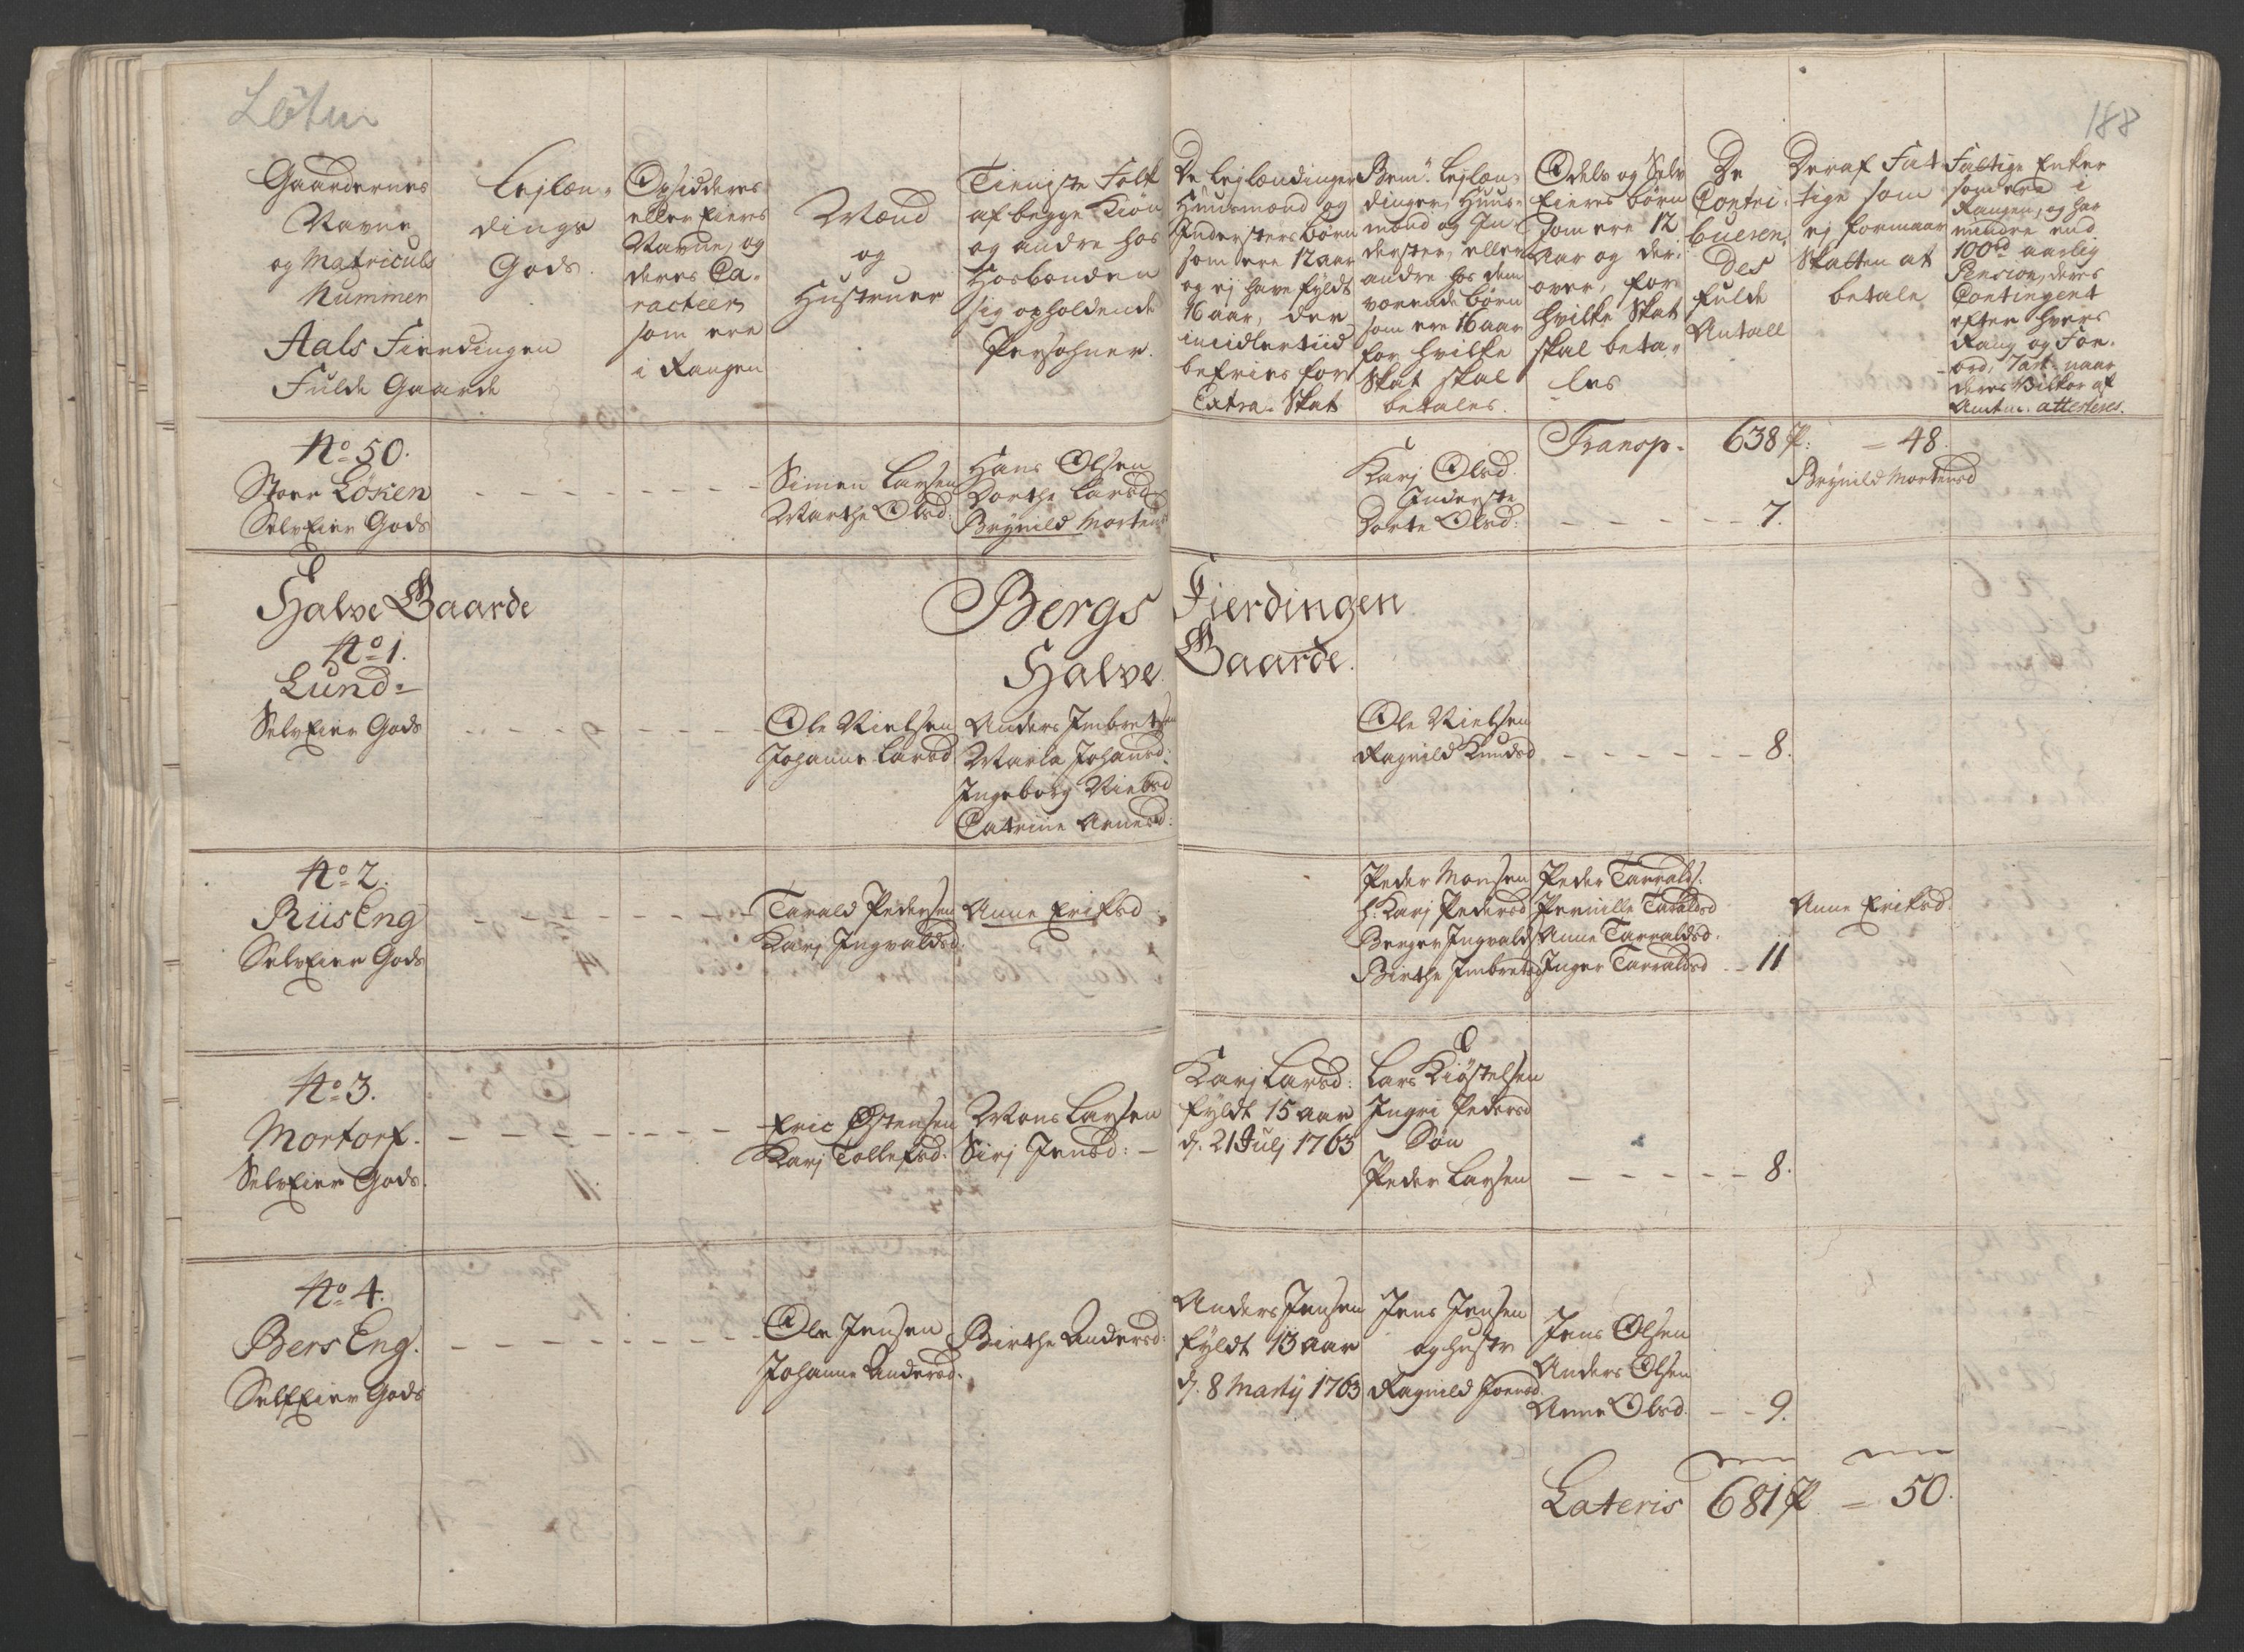 Løten
188
Gaardernes
Navne
og Matriculs
Nummer
Aals Fierdingen
Fulde Gaarde
Lejlæn-
dings
Gods.
Opsidderes
eller Eieres
Navne, og
deres Ca-
racteer
som ere
i Rangen
Mænd
og
Hustruer
Tieniste Folk
af begge Kiøn
og andre hos
Hosbonden
sig opholdende
Persohner.
De Lejlændinger
Huusmænd og
Indersters børn
som ere 12 aar
og ej have fyldt
16 aar, der
imidlertiid
befries for
Extra-Skat
Bem.te Lejlæn-
dinger, Huus-
mænd og In-
derster, eller
andre hos dem
værende børn
som ere 16 aar
for hvilke
Skat skal
betales.
Odels og Selv
Eieres børn
som ere 12
Aar og der-
over, for
hvilke Skat
skal beta-
les
De
Contri-
bueren-
des
fulde
Antall
Deraf Fat-
tige som
ej formaar
Skatten at
betale
Fattige Enker
som ere i
Rangen, og har
mindre end
100 rd aarlig
Pension, deres
Contingent
efter hvers
Rang og For-
ord. 7 art. naar
deres Vilkor af
Amtm. attesteres.
No 50.
Stoer Løken
SelvEier Gods
Simen Larsen
Marthe Olsd:
Hans Olsen
Dorthe Larsd
Brynild Mortensd
Karj Olsd.
Inderste
Dorte Olsd:
Transp. 638 P: = 48.
Brynild Mortensd
7.
Halve Gaarde
Bergs Fierdingen
Halve Gaarde.
No 1.
Lund
SelvEier Gods
Ole Nielsen
Johanne Larsd
Anders Imbretsen
Maria Johansd:
Ingeborg Nielsd
Catrine Arnesd:
Ole Nielsen
Ragnild Knudsd
8.
No 2.
RiisEng
SelvEier Gods
Tarald Pedersen
Karj Ingvaldsd.
Anne Eriksd
Peder Monsen
h: Karj Pedersd
Berger Ingvalds
Birthe Imbretsd
Peder Tarralds.
Pernille Taraldsd
Anne Tarraldsd.
Inger Tarraldsd
11
Anne Eriksd.
No 3.
Mortorf.
SelvEier Gods.
Eric Østensen
Karj Tollefsd.
Mons Larsen
Sirj Jensd:
Karj Larsd:
fyldt 15 aar
d. 21 Julj 1763
Lars Kiøstelsen
Ingri Pedersd
Søn
Peder Larsen
8.
No 4.
BersEng.
SelfEier Gods
Ole Jensen
Johanne Andersd.
Birthe Andersd:
Anders Jensen
fyldt 13 aar
d. 8 Martij 1763
Jens Jensen
og hustr
Ragnild Joensd.
Jens Olsen
Anders Olsen
Anne Olsd.
9.
Lateris 681 P = 50.